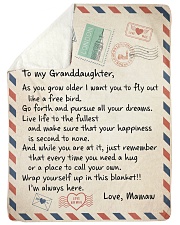 To my Granddaughter,
As you grow older I want you to fly out
like a free bird.
Go forth and pursue all your dreams.
Live life to the fullest
and make sure that your happiness
is second to none.
And while you are at it, just remember
that every time you need a hug
or a place to call your own.
Wrap yourself up in this blanket!!
I'm always here.
Love, Mamaw